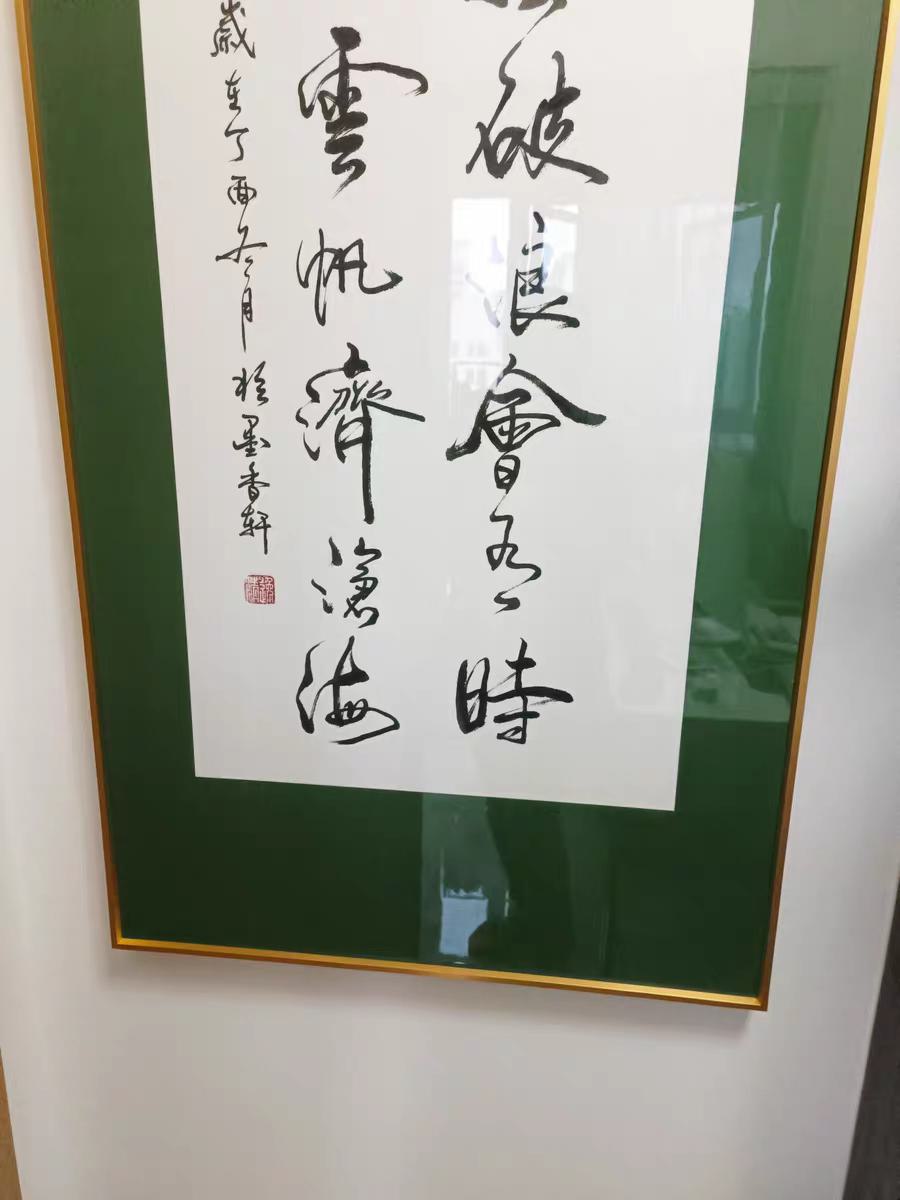 破浪會有時
雲帆濟滄海
歲在丁酉冬月於墨香軒